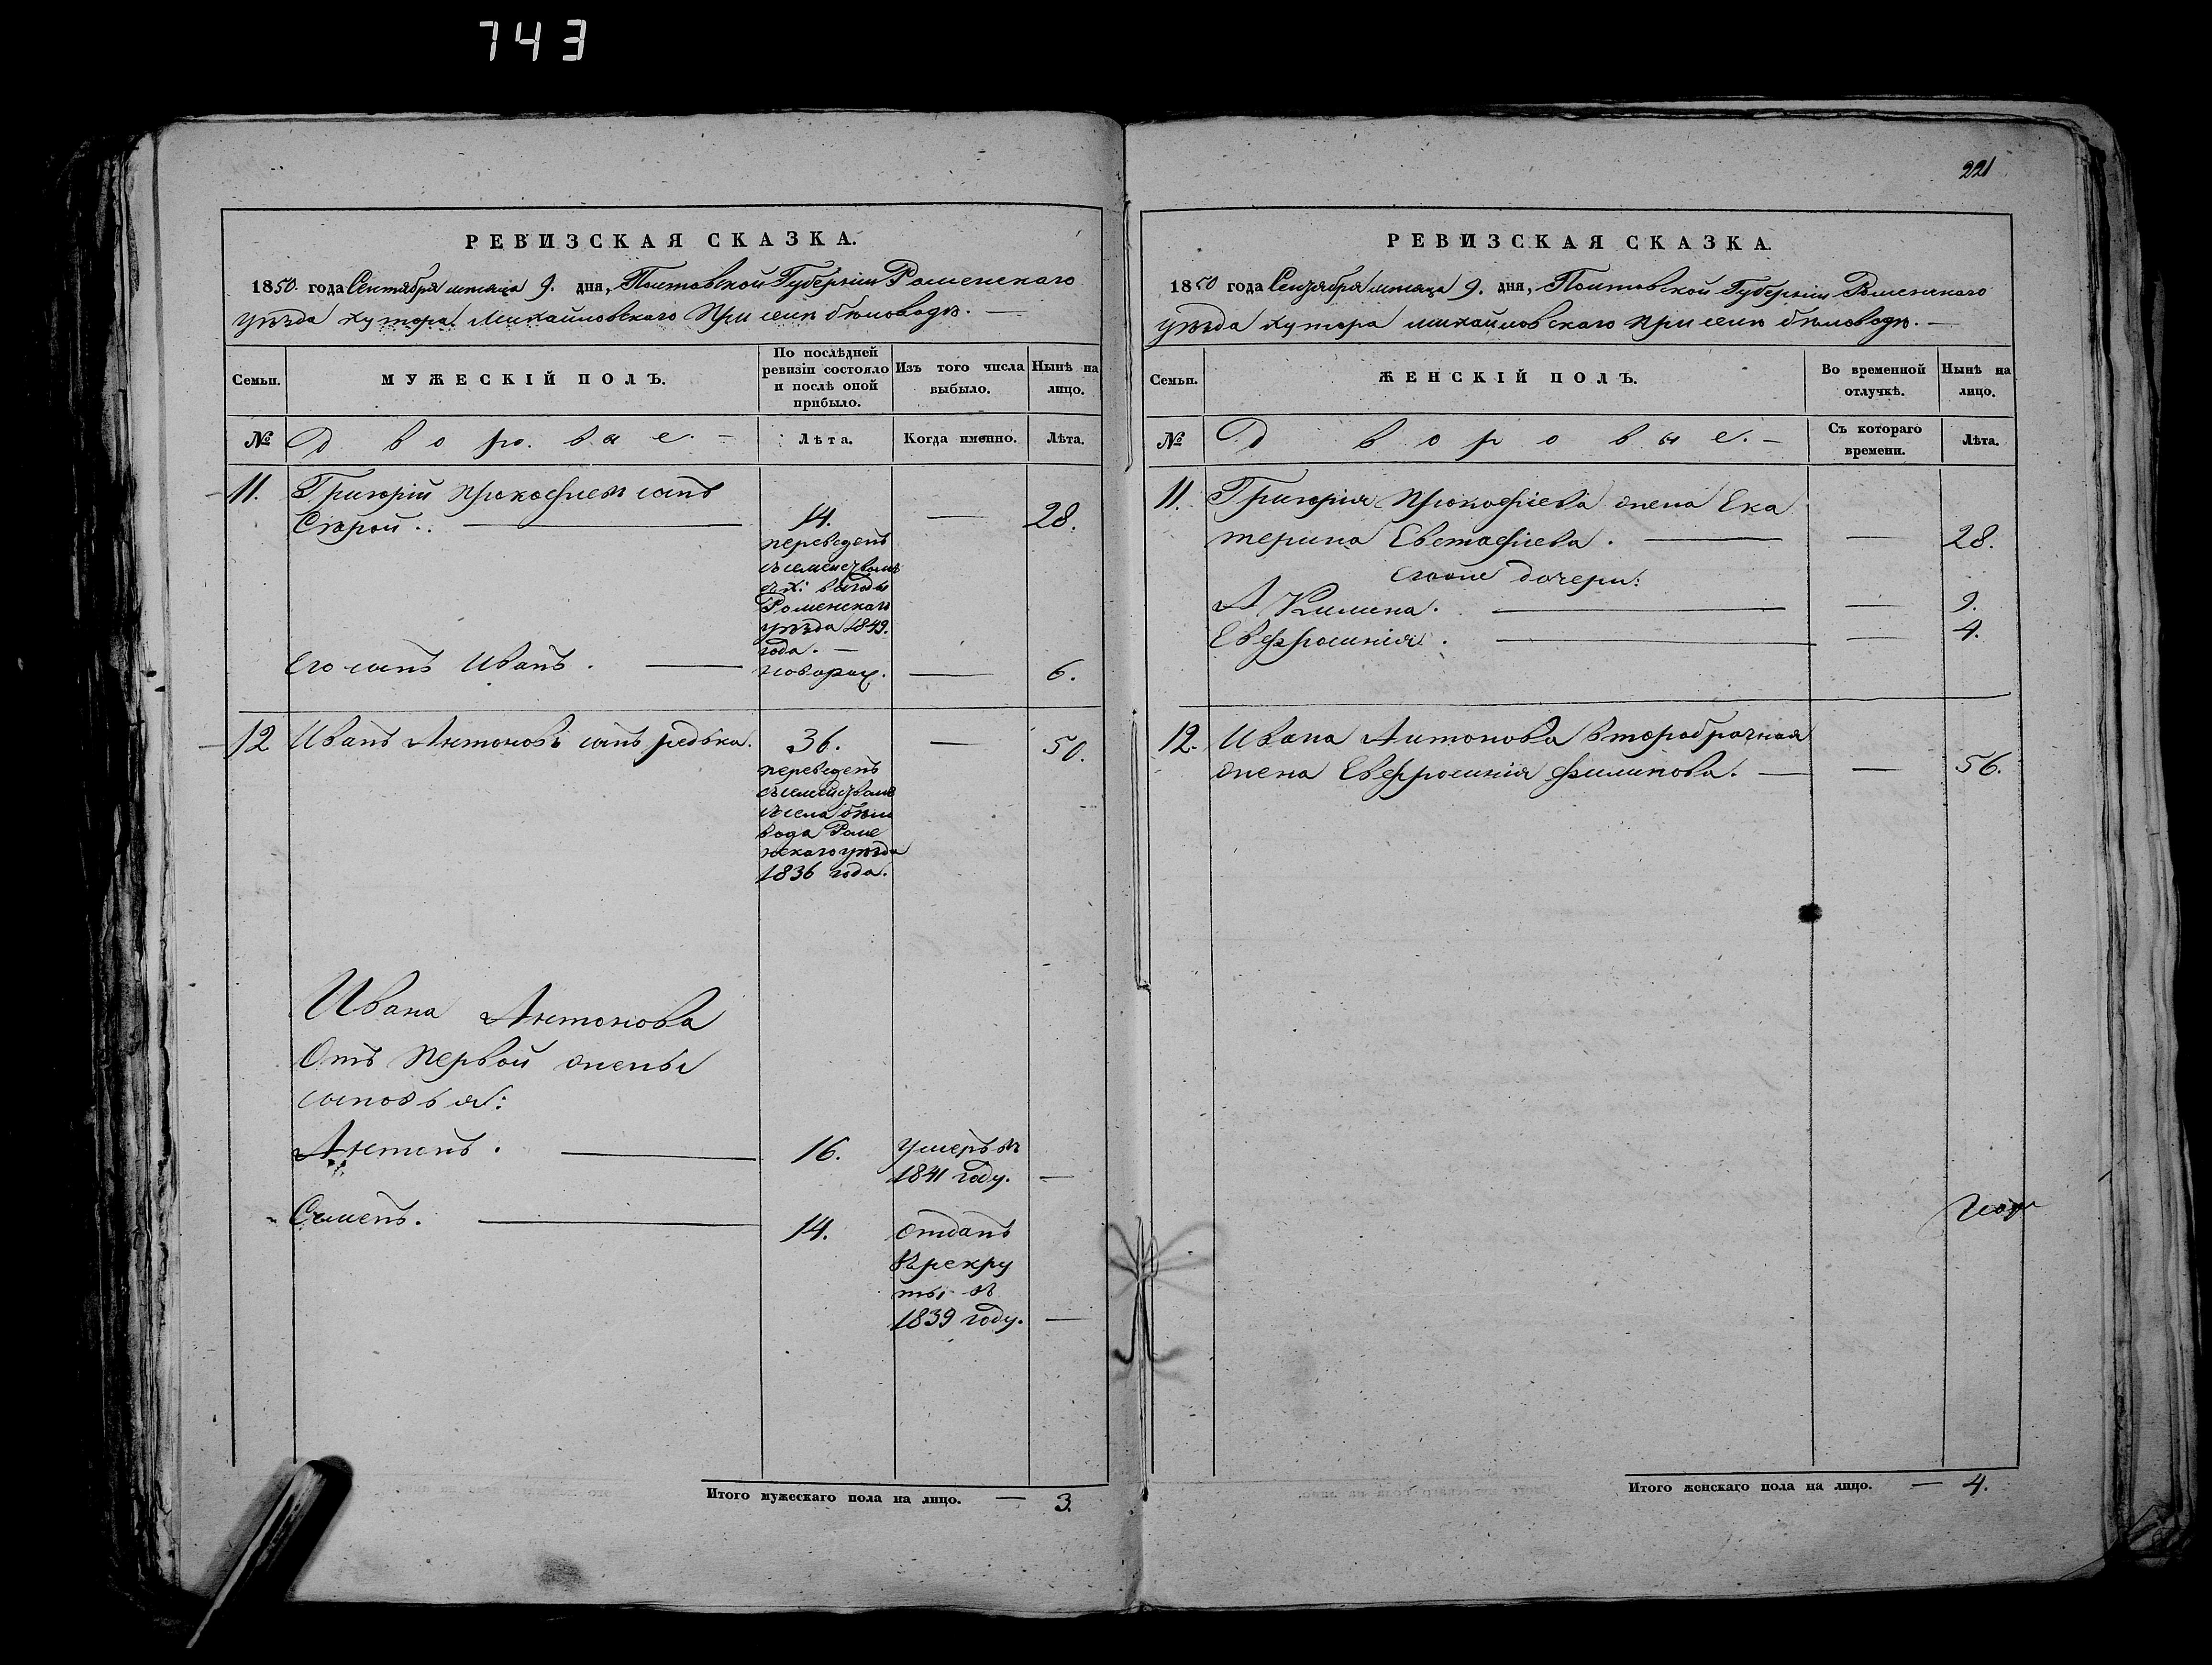 743
РЕВИЗСКАЯ СКАЗКА.
1850. года Сентября мѣсяца 9. дня, Полтавской Губерніи Роменскаго
уѣзда хутора Михайловскаго При селѣ бѣловодѣ. —
Семьи.
МУЖЕСКІЙ ПОЛЪ.
По послѣдней
ревизіи состояло
и послѣ оной
прибыло.
Изъ того числа
выбыло.
Нынѣ на
лицо.
№
Дворовые. —
Лѣта.
Когда именно.
Лѣта.
11. Григорій Прокофіевъ сынъ
Сѣрой. — 14. — 28.
переведенъ
съ семействомъ
Роменскаго
уѣзда 1849.
года. —
Его сынъ Иванъ. — новорож. — 6.
12 Иванъ Антоновъ сынъ редька. 36. — 50.
переведенъ
съ семействомъ
съ села бѣло
вода Роме
нскаго уѣзда
1836 года.
Ивана Антонова
Отъ Первой жены
сыновья:
Антонъ. — 16. Умеръ въ
1841 году. —
Семенъ. — 14. отданъ
въ рекру
ты въ
1839 году. —
Итого мужескаго пола на лицо. — 3.
221
РЕВИЗСКАЯ СКАЗКА.
1850 года Сентября мѣсяца 9. дня, Полтавской Губерніи Роменскаго
уѣзда хутора михайловскаго при селѣ бѣловодѣ. —
Семьи.
ЖЕНСКІЙ ПОЛЪ.
Во временной
отлучкѣ.
Нынѣ на
лицо.
№
Дворовые. —
Съ котораго
времени.
Лѣта.
11. Григорія Прокофіева жена Ека
терина Евстафіева. — — 28.
дочери:
Акилина. — — 9.
Евфросинія. — — 4.
12. Ивана Антонова второбрачная
жена Евфросинія филипова. — — 56.
Итого женскаго пола на лицо. — 4.